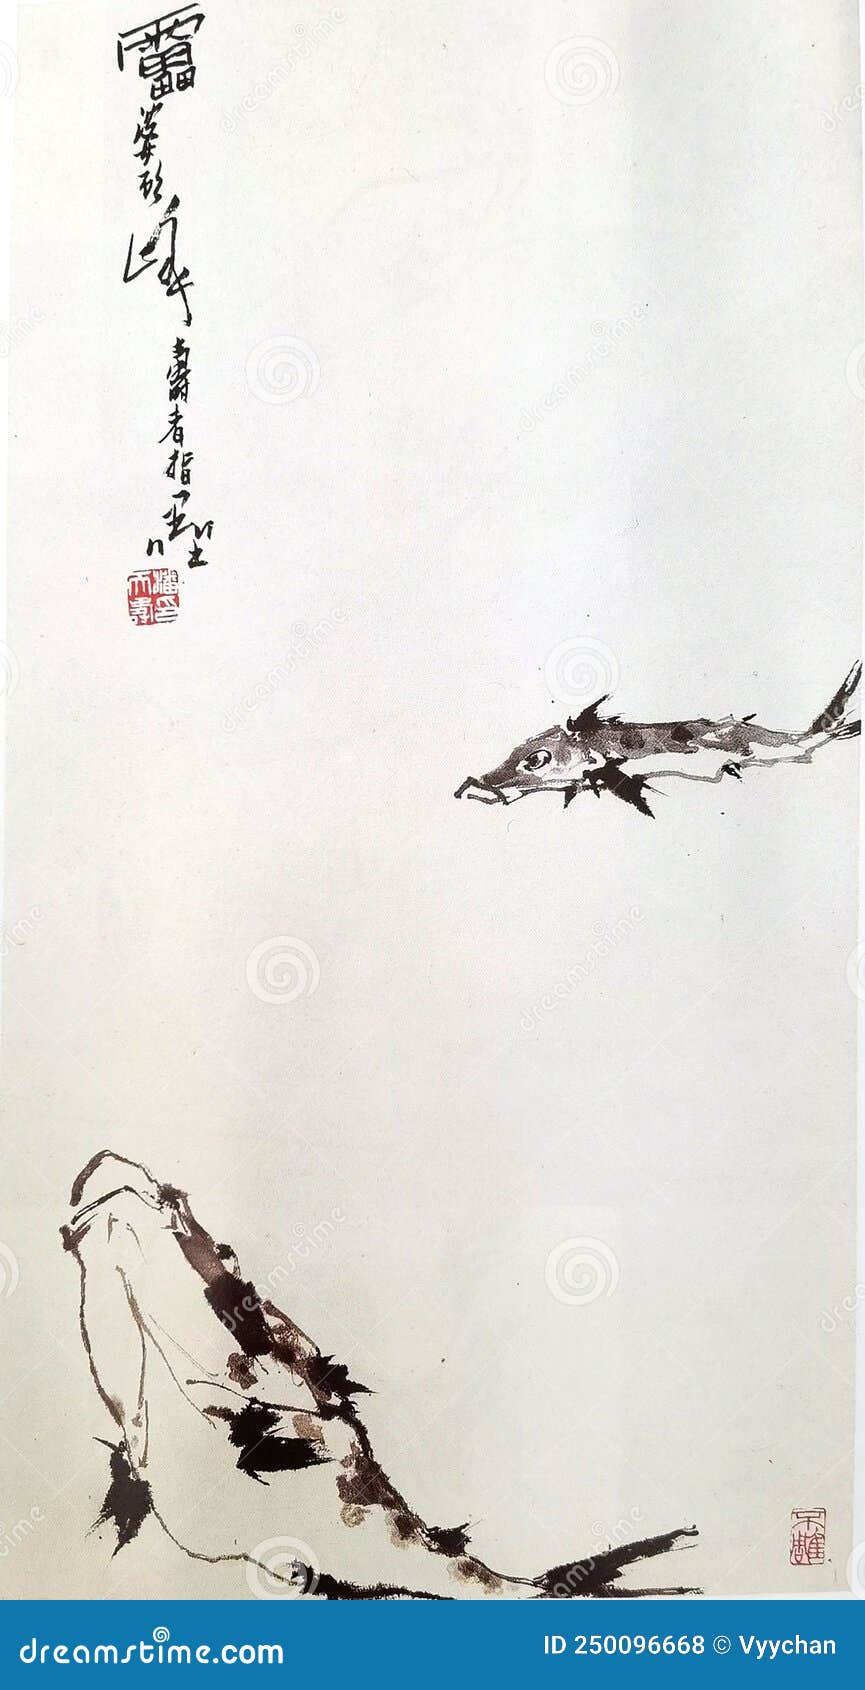 靁婆頭峰壽者指墨
潘印天壽
不雕
dreamstime.com
ID 250096668 © Vyychan